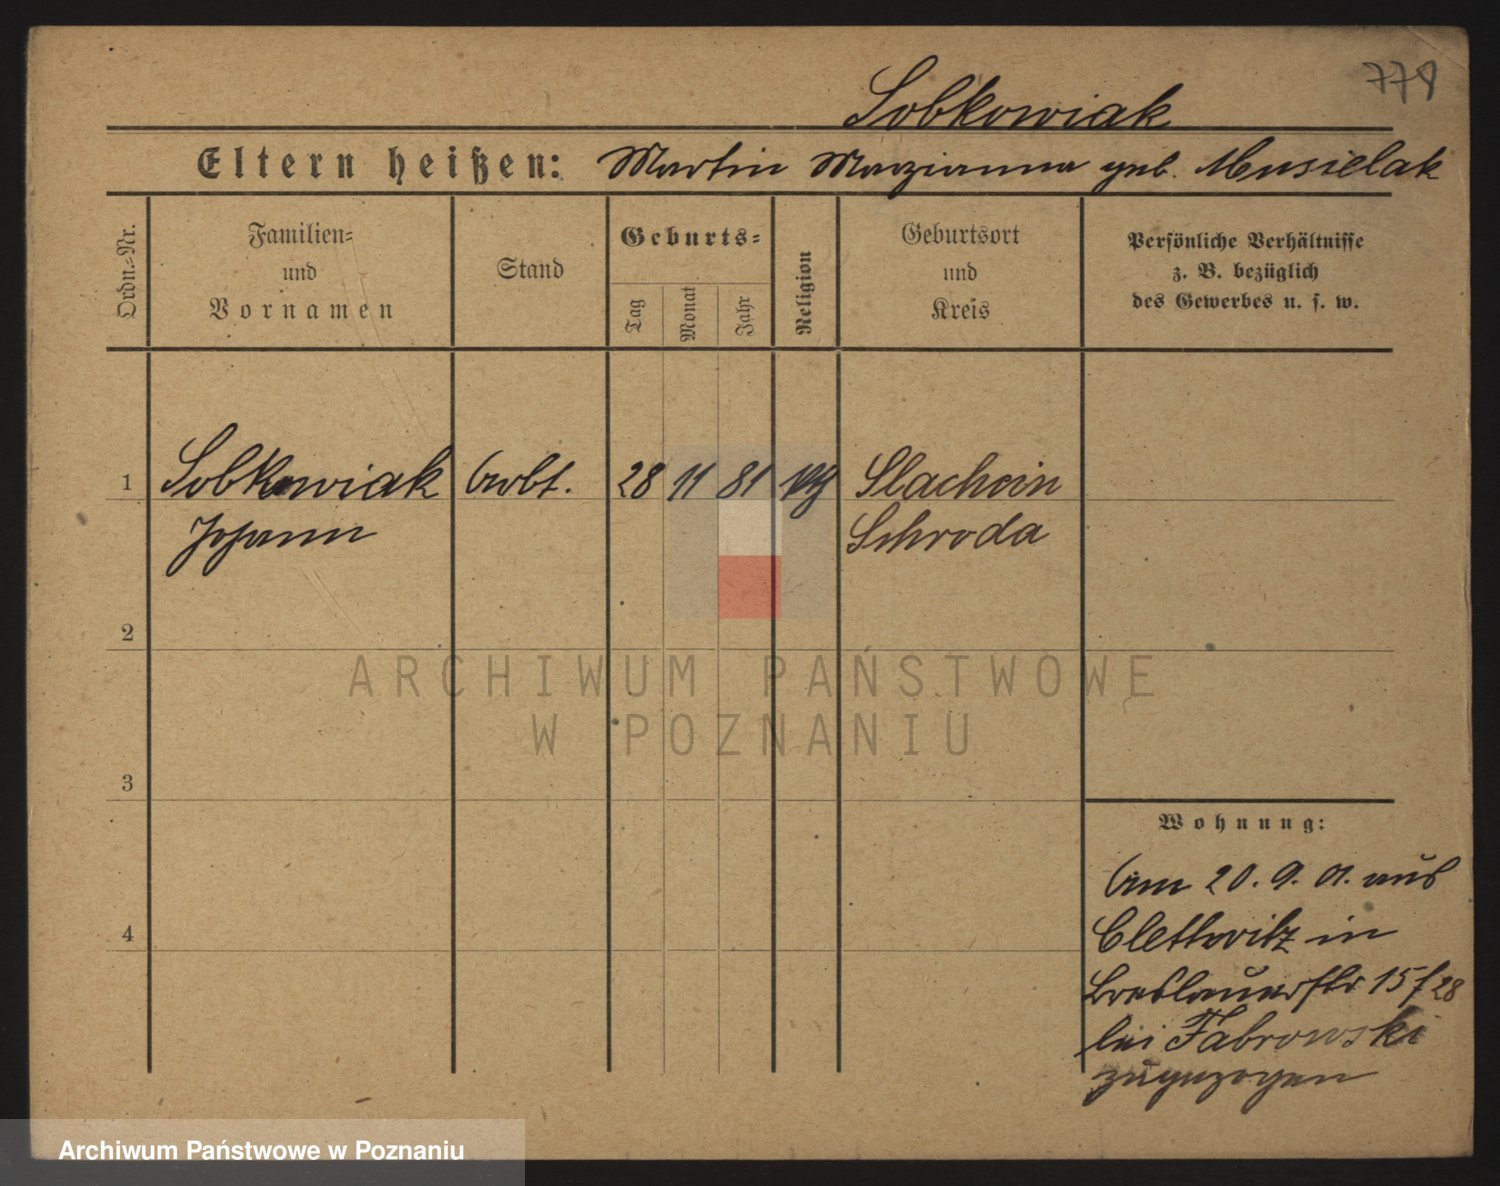 779
Sobkowiak
Eltern heißen: Martin Marzianna geb. Musielak
Ordn.=Nr.
Familien=
und
Vornamen
Stand
Geburts=
Tag
Monat
Jahr
Religion
Geburtsort
und
Kreis
Persönliche Verhältnisse
z. B. bezüglich
des Gewerbes u. s. w.
1 Sobkowiak Arbt. 28 11 81 Slachcin
Johann Schroda
2
3
4
Wohnung:
Am 20. 9. 01. aus
Clettwitz in
Breslauerstr 15 / 28
bei Fabrowski
zugezogen
ARCHIWUM PAŃSTWOWE
W POZNANIU
Archiwum Państwowe w Poznaniu